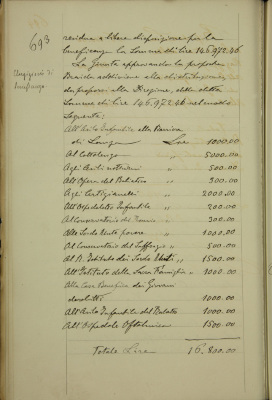 693
residua a libera disposizione per la
beneficenza la somma di lire 145.972.46
La Giunta approvando la proposta
addiviene alla distribuzione
Elargizioni di
beneficenza
di lire 145.972.46 nel modo
seguente:
All'Asilo Infantile alla Barriera
di Lire 1000.00
Al Cottolengo " 5000.00
Agli Asili notturni " 500.00
All'Opera del Baliatico " 300.00
Agli Artigianelli " 2000.00
All'Ospedaletto Infantile " 200.00
Al Conservatorio di " 300.00
Alle Sordo Mute povere " 1000.00
Al Conservatorio del Suffragio " 500.00
Al R. Istituto dei Sordo Muti " 1500.00
All'Istituto della Sacra Famiglia " 1000.00
Alla Casa Benefica dei Giovani
derelitti 1000.00
All'Asilo Infantile del 1000.00
All'Ospedale Oftalmico 1500.00
Totale Lire 16.800.00